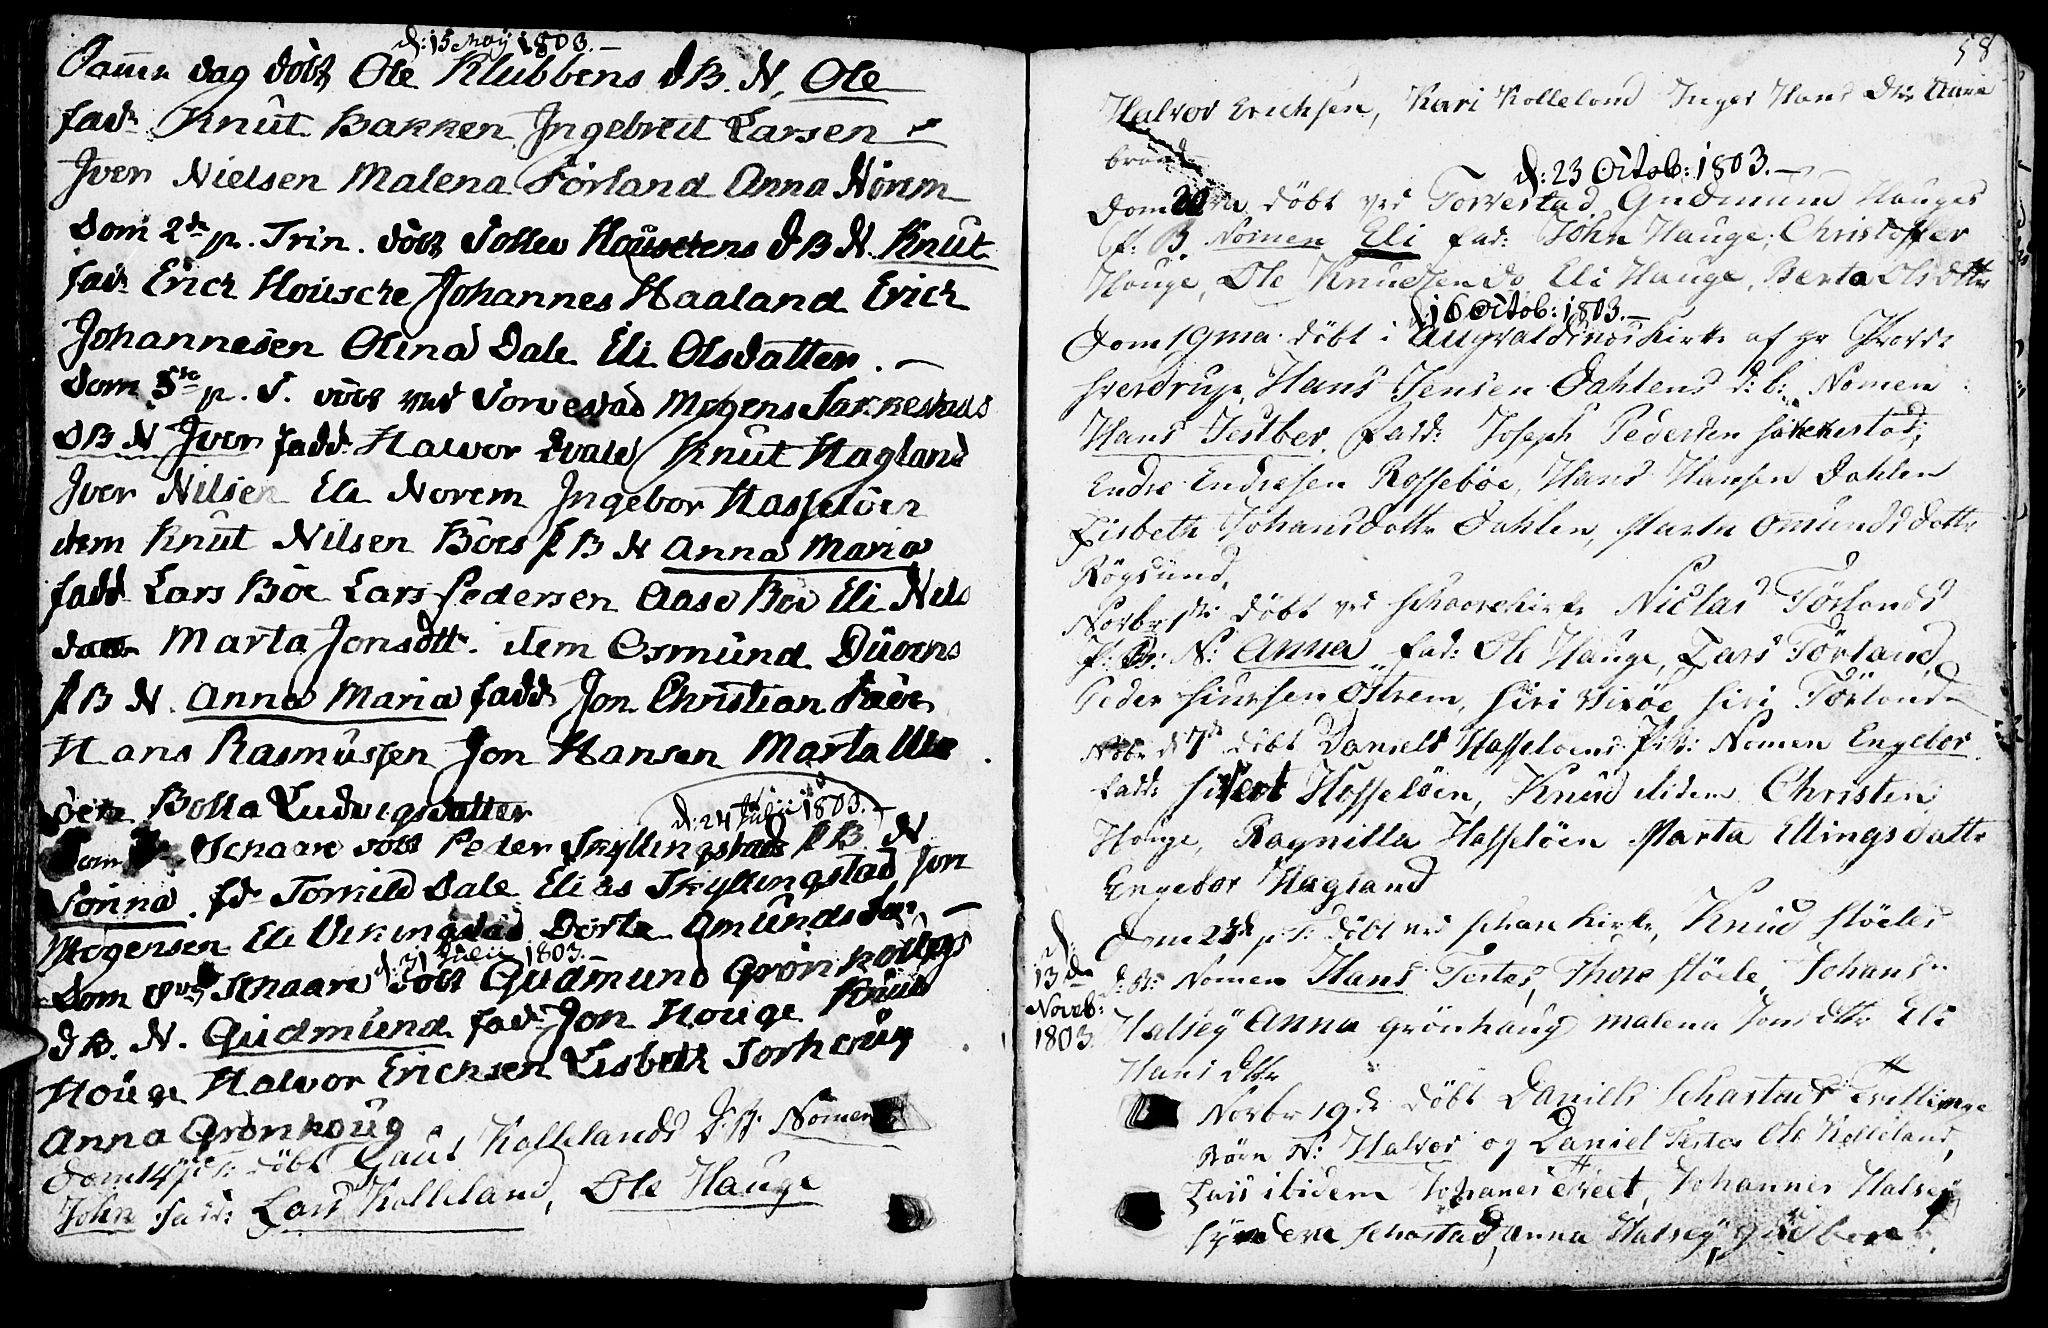 d: 15 May 1803. —
Samme dag döbt Ole Klubbens d B. N, Ole
fad: Knut Bakken Ingebret Larsen
Iver Nielsen Malena Förland Anna Norem
Dom 2de p. Trin. döbt Tollev Housckens d B N. Knut
fad: Erich Housche Johannes Haaland Erich
Johannesen Olena Dale Eli Olsdatter. —
Dom 5te p. T. döbt ved Torvestad Mogens Sakkestads
d B N Iver fadd: Halvor Qvale Knut Hagland
Iver Nilsen Eli Norem Ingebor Hasselöen
item Knut Nilsen Böes p B N Anna Maria
fadd Lars Böe Lars Pedersen Aase Böe Eli Nels
datter Marta Jonsdtt. item Osmund Duvens
p B N. Anna Maria fadd: Jon Christian
Hans Rasmussen Jon Hansen Marta
Bolla Ludvigsdatter
d: 24 Julii 1803. —
Dom Schaare döbt Peder Skyllingstads p B. N
Sörina. fd: Tormild Dale Elias Skyllingstad, Jon
Mogensen Eli Vikingstad Dorte Amunds dtr. —
d: 31 Julii 1803. —
Dom 8va Schaare döbt Gudmund Grönhougs
d B. N. Gudmund fad: Jon Houge Knud
Houge Halvor Erichsen Lisbeth Torhoug
Anna Grönhoug.
Dom 14 p t: döbt Gaut Kollelands d: B: Nomen
John fadd: Lars Kolleland, Ole Hauge
58
Halvor Erichsen, Kari Kolleland Inger Hans Dtr Anne
d: 23 Octob: 1803. —
Dom 20ma döbt ved Torvestad Gudmund Hauges
p: B. Nomen Eli fad: John Hauge, Christoffer
Hauge, Ole Knudsen do Eli Hauge, Berta Olsdttr
d 16 Octob: 1803. —
Dom 19ma döbt i Augvaldsnes Kirke af Hr Provst
Sverdrup, Hans Jensen Dahlens d: b: Nomen
Hans Jestber, fadd: Joseph Pedersen Sakkestad,
Endre Endresen Rossebøe, Hans Hansen Dahlen
Lisbeth Johansdattr Dahlen, Marta Omundsdattr
Røgsund,
Novbr 1ste döbt ved Schaare kirke Niclas Förlands
p: B: N: Anna fad: Ole Hauge, Lars Förland
Peder Siursen Østrem, Siri Vixöe Siri Förland
Nobr d 7de döbt Daniels Hasseloens P: B: Nomen Engebor
fadd: Sivert Hasselöen, Knud ibidem Christen
Houge, Ragnilla Hasselöen Marta Ellingsdattr
Engebor Hagland
d: 13de Novb: 1803.
Dom 23de p t: döbt ved Schare kirke, Knud Stöeles
d: B: Nomen Hans Testes, Thore Stöele, Johans
Halsey Anna Grönhaug Malena Jons dttr Eli
Hans Dttr
Novbr 19de döbt Daniels Schastads Tvillinge
Börn N: Halvor og Daniel Testes Ole Kolleland,
Lars ibidem Johanes Treet, Johannes Halsey
Synneve Schastad, Anna Halsey,